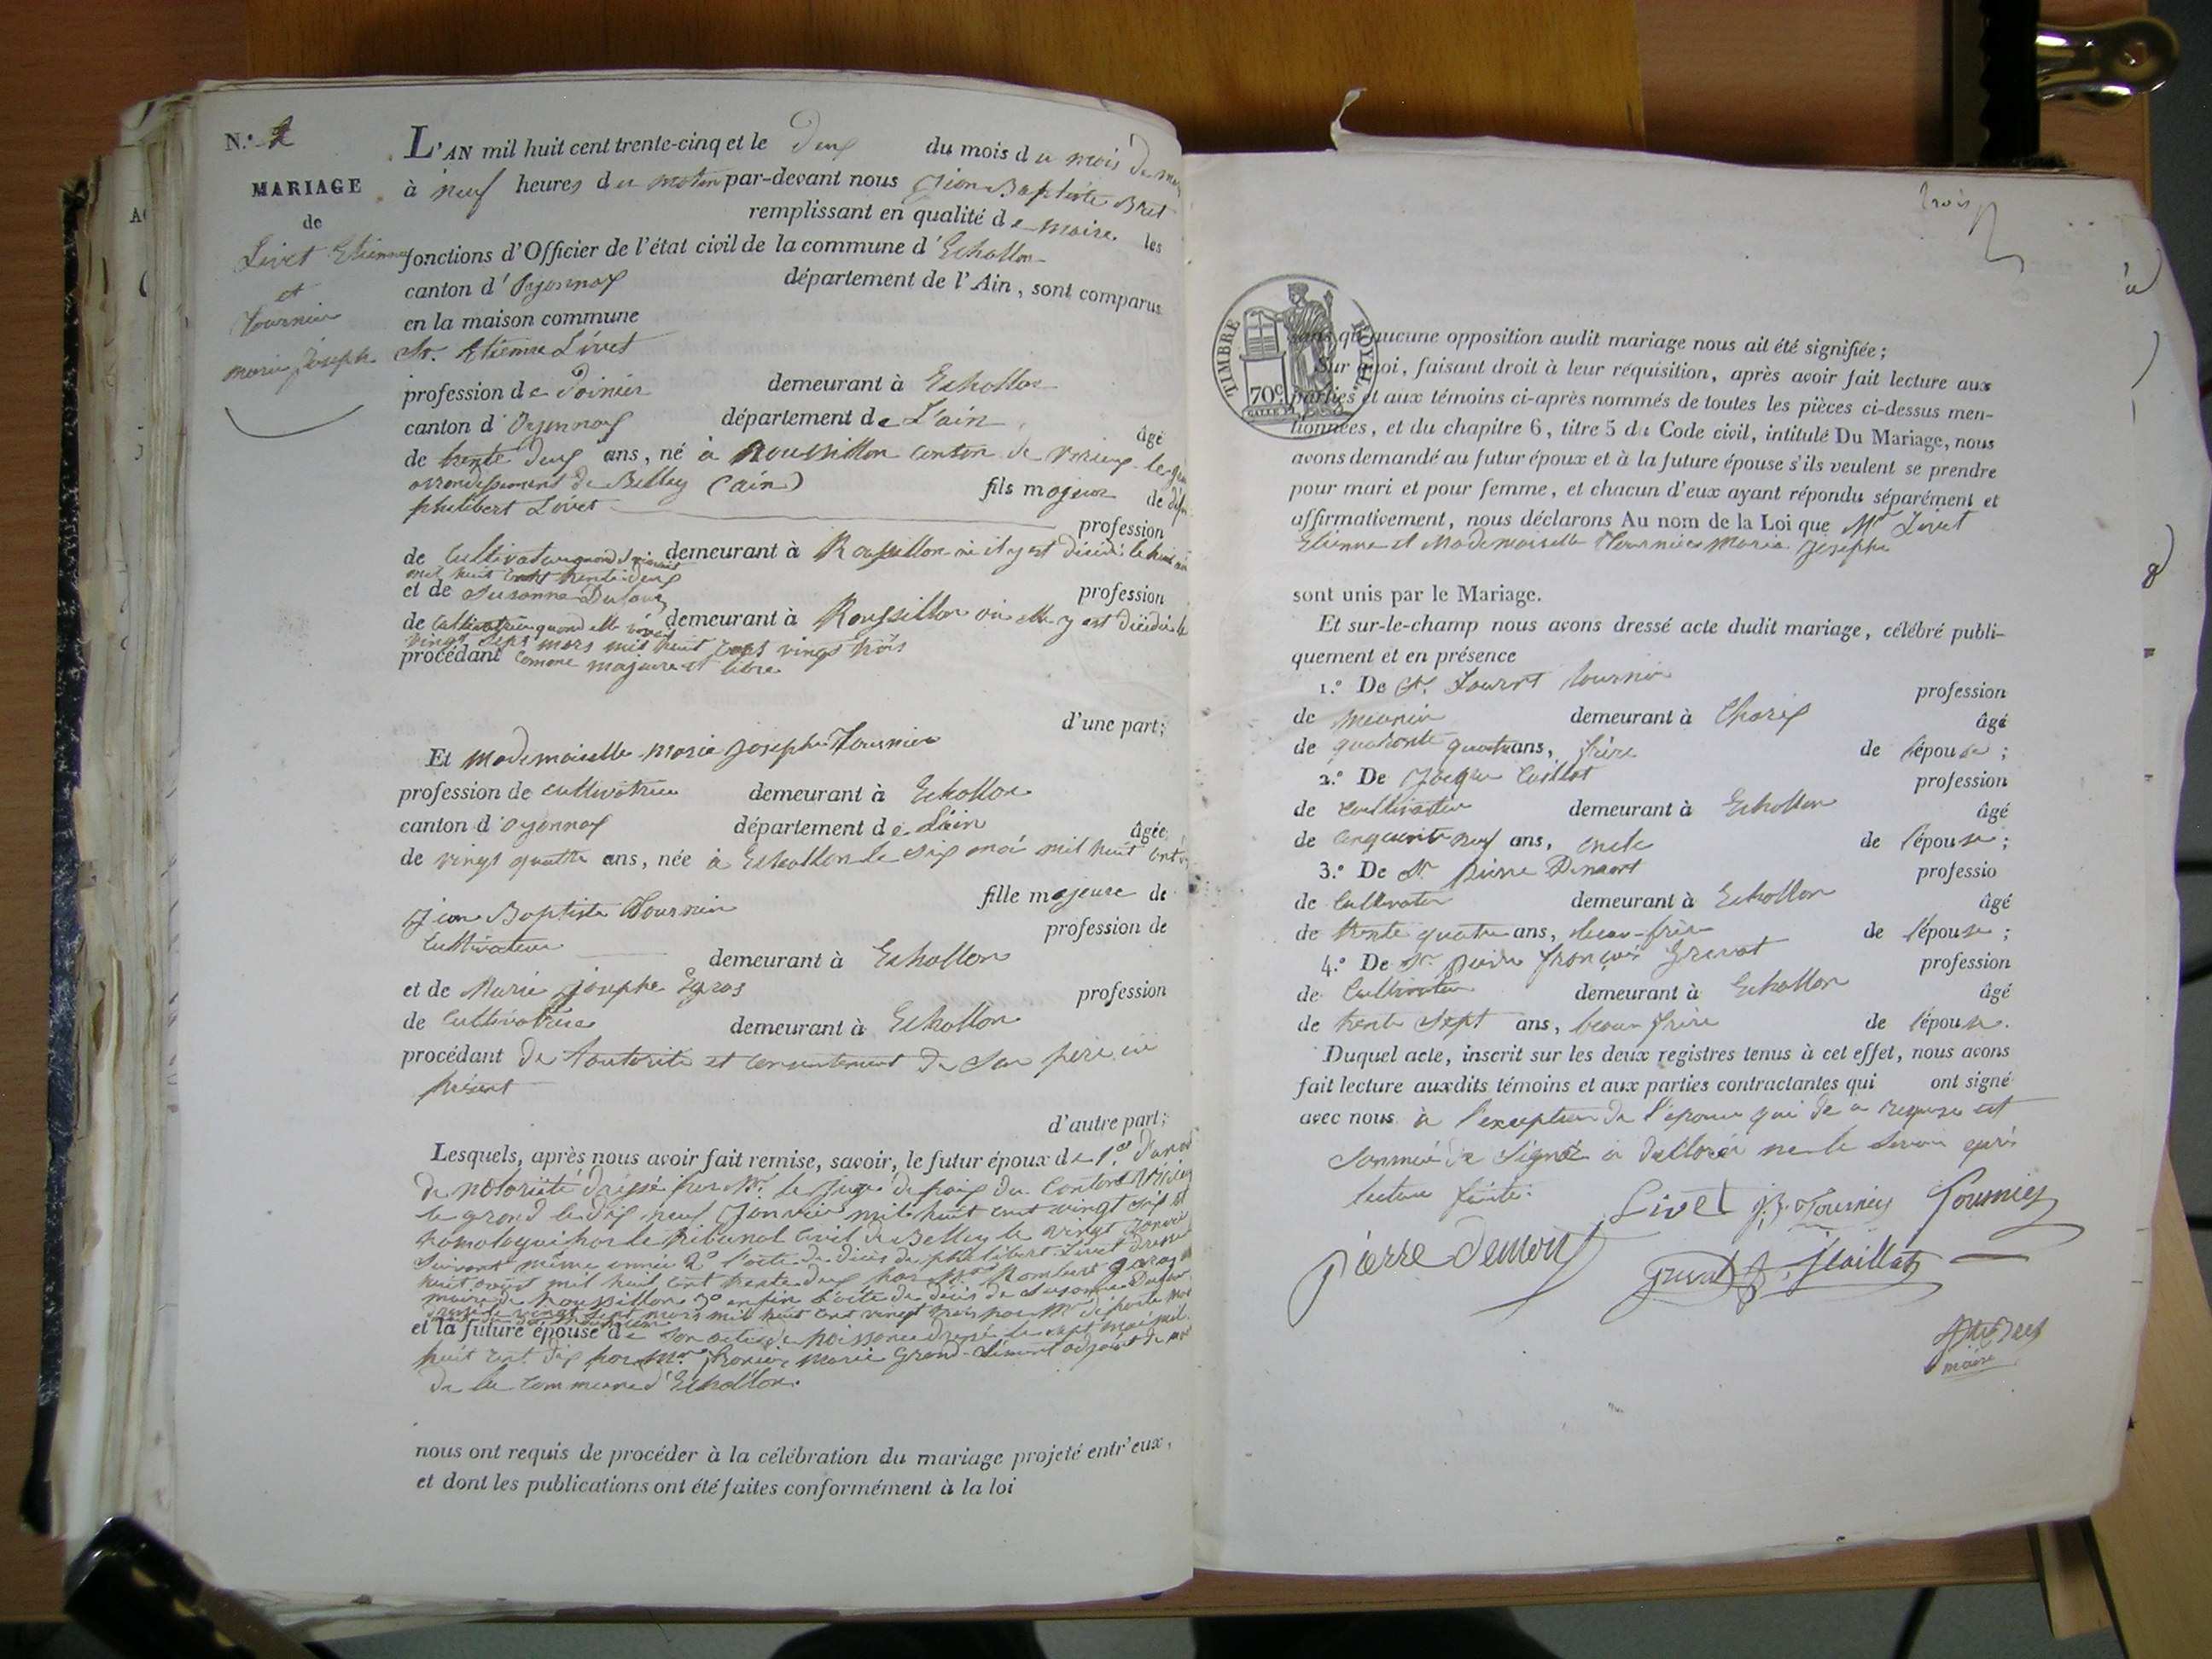 N.° 2
MARIAGE
de
Livet Etienne
et
Tournier
marie Joseph
L'AN mil huit cent trente-cinq et le deux du mois du mois de
à neuf heures du matin par-devant nous Jean Baptiste Bret
remplissant en qualité de maire les
fonctions d'Officier de l'état civil de la commune d'Echallon
canton d'Oyonnax département de l'Ain, sont comparus
en la maison commune
Sr. Etienne Livet
profession de demeurant à Echallon
canton d'Oyonnax département de L'ain, âgé
de trente deux ans, né à Roussillon canton de virieux le
arrondissement de Belley (ain) fils majeur de
philibert Livet profession
de Cultivateur quand demeurant à Roussillon où il y est décédé le huit
mil huit cent trente deux
et de Susanne Dufour profession
de Cultivatrice quand elle vivait demeurant à Roussillon où elle y est décédée le
vingt sept mars mil huit cent vingt trois
procédant comme majeur et libre
d'une part;
Et Mademoiselle Marie Josephe Tournier
profession de cultivatrice demeurant à Echallon
canton d'oyonnax département de L'ain âgée
de vingt quatre ans, née à Echallon le six mai mil huit cent
fille majeure de
Jean Baptiste Tournier profession de
Cultivateur demeurant à Echallon
et de Marie josephe Egras profession
de Cultivatrice demeurant à Echallon
procédant de l'autorité et consentement de son père ici
présent
d'autre part;
Lesquels, après nous avoir fait remise, savoir, le futur époux de 1.°
de notoriété dressé par Mr. le Juge de paix du Canton
le grand le dix neuf Janvier mil huit cent vingt six et
homologué par le tribunal civil de Belley le vingt janvier
Suivant même année 2.° l'acte de décès de philibert Livet dressé
huit août mil huit cent trente deux par Mr.
maire de Roussillon 3.° enfin l'acte de décès de Susanne Dufour
vingt sept mars mil huit cent vingt trois par Mr.
et la future épouse de son acte de naissance dressé le sept mai mil
huit cent dix par Mr. marie Grand-Clément adjoint
de la commune d'Echallon.
nous ont requis de procéder à la célébration du mariage projeté entr'eux,
et dont les publications ont été faites conformément à la loi
trois
TIMBRE ROYAL
70c
sans qu'aucune opposition audit mariage nous ait été signifiée;
Sur quoi, faisant droit à leur réquisition, après avoir fait lecture aux
parties et aux témoins ci-après nommés de toutes les pièces ci-dessus men-
tionnées, et du chapitre 6, titre 5 du Code civil, intitulé Du Mariage, nous
avons demandé au futur époux et à la future épouse s'ils veulent se prendre
pour mari et pour femme, et chacun d'eux ayant répondu séparément et
affirmativement, nous déclarons Au nom de la Loi que Mr Livet
Etienne et Mademoiselle Tournier Marie Josephe
sont unis par le Mariage.
Et sur-le-champ nous avons dressé acte dudit mariage, célébré publi-
quement et en présence
1.° De Sr. Laurent Tournier profession
de meunier demeurant à Charix âgé
de quarante quatre ans, frère de l'épouse;
2.° De Jacques Caillat profession
de cultivateur demeurant à Echallon âgé
de cinquante neuf ans, oncle de l'épouse;
3.° De Sr. pierre profession
de Cultivateur demeurant à Echallon âgé
de trente quatre ans, beau-frère de l'épouse;
4.° De Sr. pierre françois Gruat profession
de Cultivateur demeurant à Echallon âgé
de trente sept ans, beau frère de l'épouse.
Duquel acte, inscrit sur les deux registres tenus à cet effet, nous avons
fait lecture auxdits témoins et aux parties contractantes qui ont signé
avec nous à l'exception de l'épouse qui de ce requise et
Sommée de Signer a déclaré ne le savoir après
lecture faite.
Livet J.B. Tournier Tournier
pierre
maire